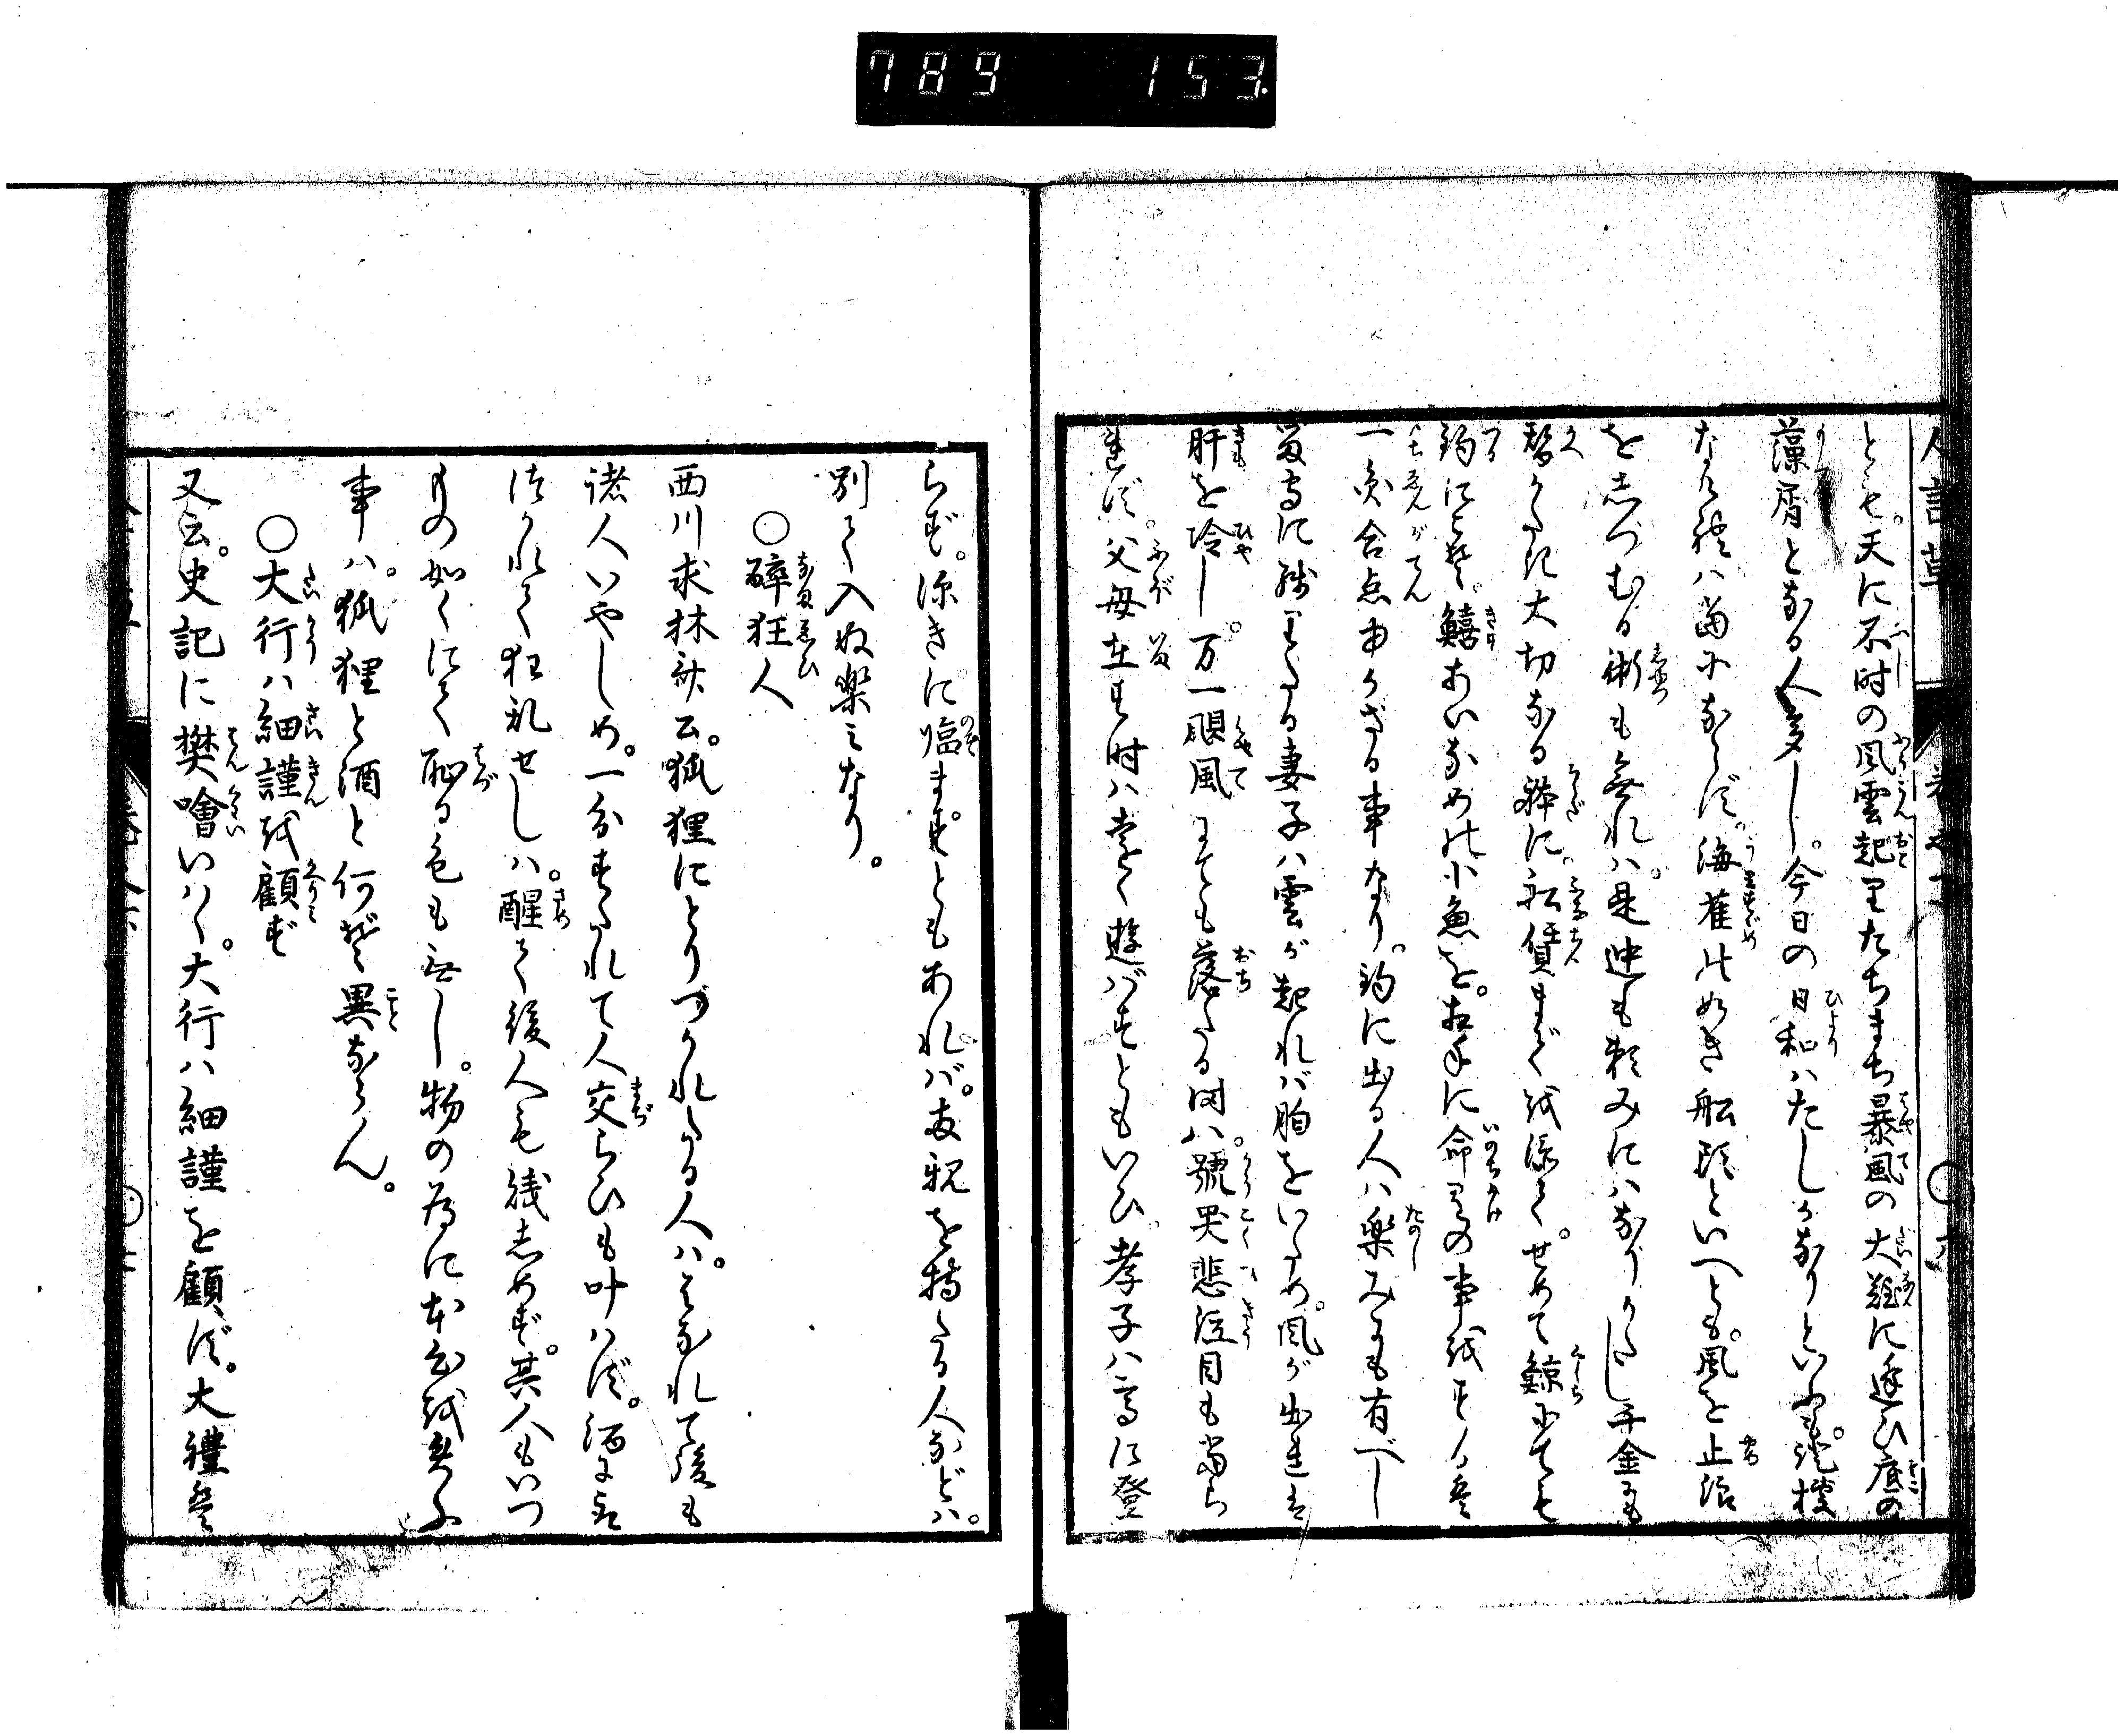 789 153
とも。天に不時の風雲起りたちまち暴風の大難に逢ひ底の
藻屑となる人多し。今日の日和はたしかなりといふ證據
なければ当にならず。海雀の如き船頭といへども。風を止浪
をしづむる術も無れば。是迚も頼みにはなりがたし千金にも
替がたき大切なる躰に。船賃まで添て。せめて鯨にても
釣にこそ。鱚あいなめの小魚を。相手に命がけの事をするは
一ゑん合点ゆかざる事なり。釣に出る人は楽みにも有べし
留守に残りたる妻子は雲が起れば胸をいため。風が出れば
肝を冷し。万一颶風にても落たる時は。號哭悲泣目も当ら
れず。父母在す時は遠く遊ばずともいひ。孝子は高に登
らず。深きに臨まずともあれば。両親を持たる人などは。
別て入ぬ楽みなり。
○酔狂人
西川求林斎云。狐狸にとりつかれたる人は。はなれて後も
諸人いやしめ。一分すたれて人交らひも叶はず。酒に
つかれて狂乱せしは。醒て後人も賤しめず。其人もいつ
もの如くにて恥る色も無し。物の為に本心を失ふ
事は。狐狸と酒と何ぞ異ならん。
○大行は細謹を顧ず
又云。史記に樊噲いはく。大行は細謹を顧ず。大禮は